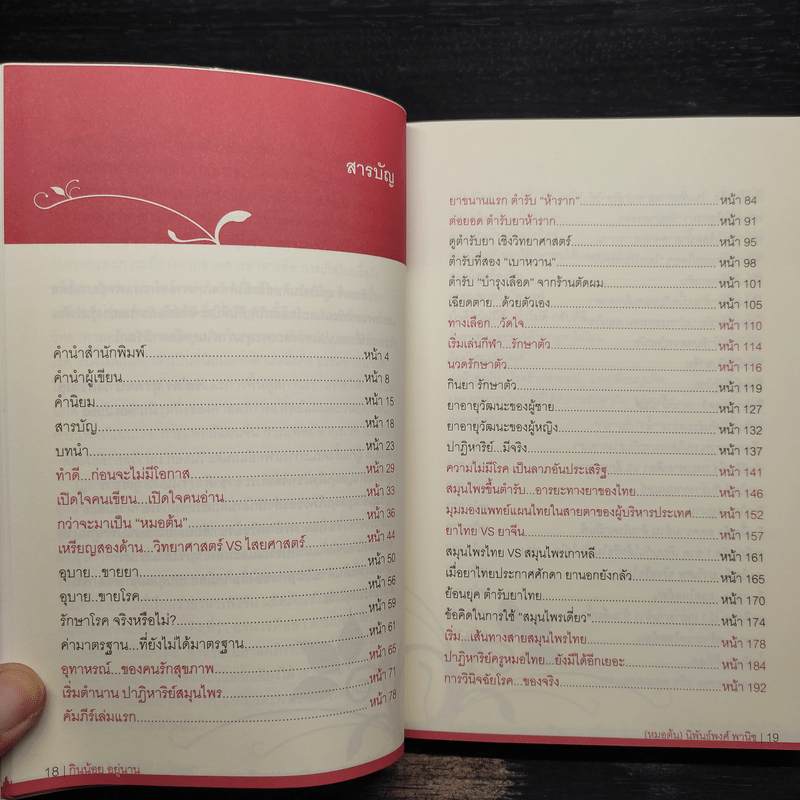 สารบัญ
คำนำสำนักพิมพ์..........หน้า 4
คำนำผู้เขียน..........หน้า 8
คำนิยม..........หน้า 15
สารบัญ..........หน้า 18
บทนำ..........หน้า 23
ทำดี...ก่อนจะไม่มีโอกาส..........หน้า 29
เปิดใจคนเขียน...เปิดใจคนอ่าน..........หน้า 33
กว่าจะมาเป็น "หมอต้น"..........หน้า 36
เหรียญสองด้าน...วิทยาศาสตร์ VS ไสยศาสตร์..........หน้า 44
อุบาย...ขายยา..........หน้า 50
อุบาย...ขายโรค..........หน้า 56
รักษาโรค จริงหรือไม่?..........หน้า 59
ค่ามาตรฐาน...ที่ยังไม่ได้มาตรฐาน..........หน้า 61
อุทาหรณ์...ของคนรักสุขภาพ..........หน้า 65
เริ่มตำนาน ปาฏิหาริย์สมุนไพร..........หน้า 71
คัมภีร์เล่มแรก..........หน้า 78
18 | กินน้อย อยู่นาน
ยาขนานแรก ตำรับ "ห้าราก"..........หน้า 84
ต่อยอด ตำรับยาห้าราก..........หน้า 91
ดูตำรับยา เชิงวิทยาศาสตร์..........หน้า 95
ตำรับที่สอง "เบาหวาน"..........หน้า 98
ตำรับ "บำรุงเลือด" จากร้านตัดผม..........หน้า 101
เฉียดตาย...ด้วยตัวเอง..........หน้า 105
ทางเลือก...วัดใจ..........หน้า 110
เริ่มเล่นกีฬา...รักษาตัว..........หน้า 114
นวดรักษาตัว..........หน้า 116
กินยา รักษาตัว..........หน้า 119
ยาอายุวัฒนะของผู้ชาย..........หน้า 127
ยาอายุวัฒนะของผู้หญิง..........หน้า 132
ปาฏิหาริย์...มีจริง..........หน้า 137
ความไม่มีโรค เป็นลาภอันประเสริฐ..........หน้า 141
สมุนไพรขึ้นตำรับ...อารยะทางยาของไทย..........หน้า 146
มุมมองแพทย์แผนไทยในสายตาของผู้บริหารประเทศ..........หน้า 152
ยาไทย VS ยาจีน..........หน้า 157
สมุนไพรไทย VS สมุนไพรเกาหลี..........หน้า 161
เมื่อยาไทยประกาศศักดา ยานอกยังกลัว..........หน้า 165
ย้อนยุค ตำรับยาไทย..........หน้า 170
ข้อคิดในการใช้ "สมุนไพรเดี่ยว"..........หน้า 174
เริ่ม...เส้นทางสายสมุนไพรไทย..........หน้า 178
ปาฏิหาริย์ครูหมอไทย...ยังมีได้อีกเยอะ..........หน้า 184
การวินิจฉัยโรค...ของจริง..........หน้า 192
(หมอต้น) นิพันธ์พงศ์ พานิช | 19